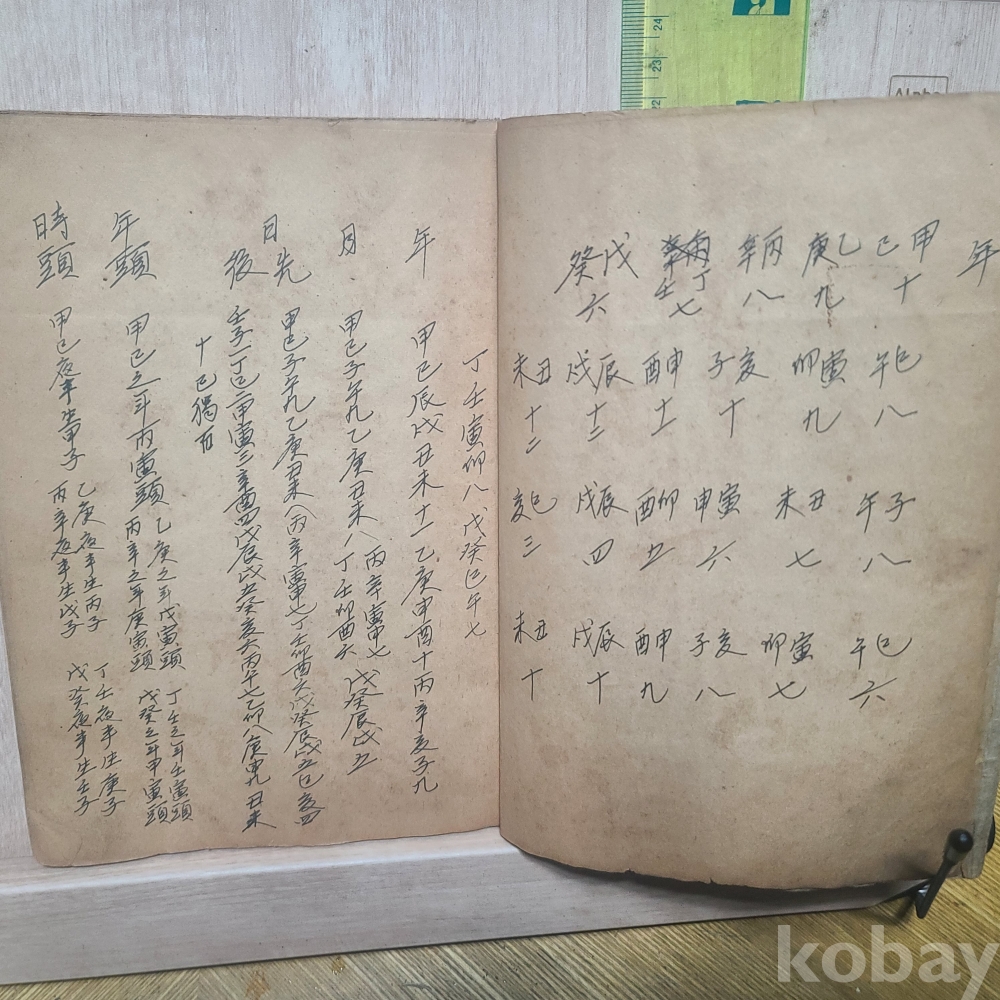 年
甲己十 乙庚九 丙辛八 丁壬七 戊癸六
巳午八 寅卯九 亥子十 申酉十一 辰戌十二 丑未十二
子午八 丑未七 寅申六 卯酉五 辰戌四 巳亥三
巳午六 寅卯七 亥子八 申酉九 辰戌十 丑未十
丁壬寅卯八戊癸巳午七
年 甲己辰戌丑未十一乙庚申酉十丙辛亥子九
月 甲己子午九乙庚丑未八 丙辛寅申七 丁壬卯酉六 戊癸辰戌五
日先 甲己子午九乙庚丑未八丙辛寅申七丁壬卯酉六戊癸辰戌五巳亥四
後 壬子一丁巳二甲寅三辛酉四戊辰戌五癸亥六丙午七乙卯八庚申九丑未
十己獨百
年頭 甲己之年丙寅頭 乙庚之年戊寅頭 丙辛之年庚寅頭 丁壬之年壬寅頭 戊癸之年甲寅頭
時頭 甲己夜半生甲子 乙庚夜半生丙子 丙辛夜半生戊子 丁壬夜半生庚子 戊癸夜半生壬子
24
23
22
Alpha
kobay